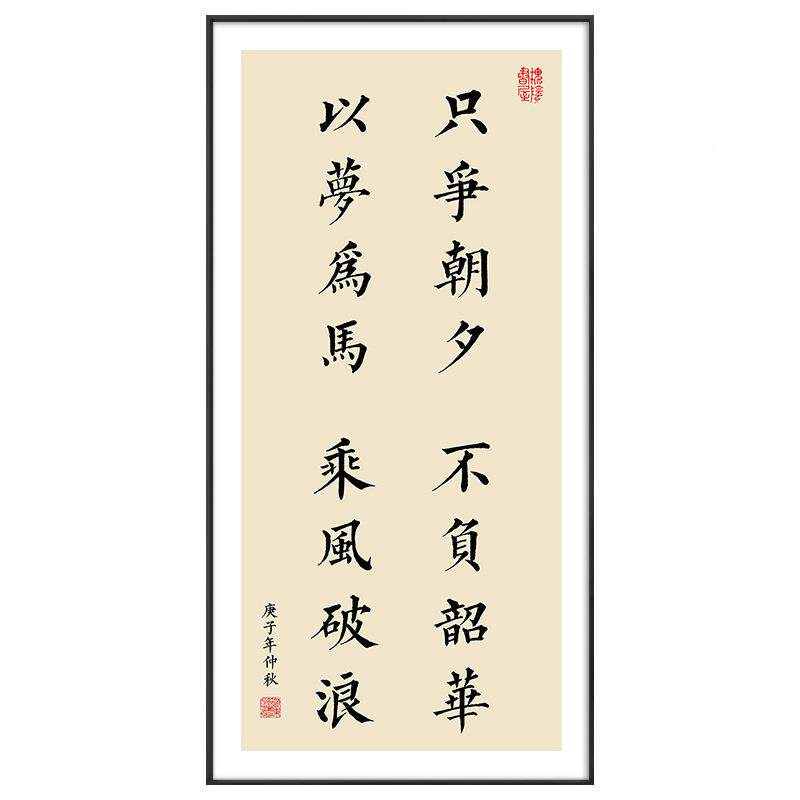 只爭朝夕 不負韶華
以夢為馬 乘風破浪
庚子年仲秋